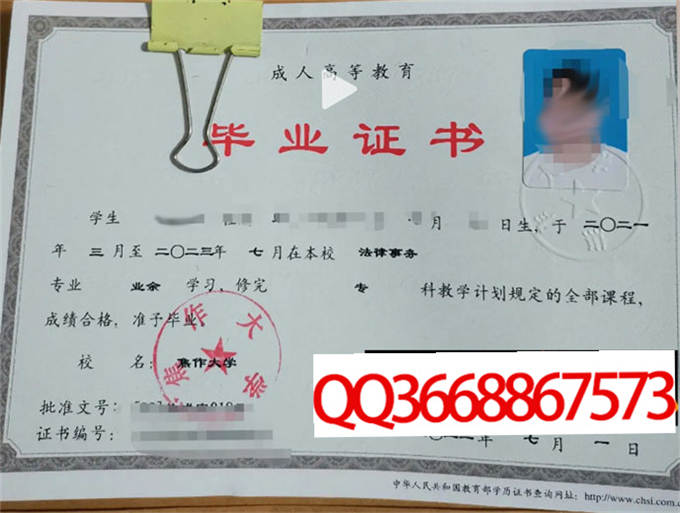 成人高等教育
毕业证书
学生 月 日生,于 二〇二一
年 三 月至 二〇二三年 七 月在本校 法律事务
专业 业余 学习,修完 专 科教学计划规定的全部课程,
成绩合格,准予毕业。
校 名: 焦作大学
焦作大学
QQ3668867573
批准文号:
证书编号:
年 七 月 一 日
中华人民共和国教育部学历证书查询网址: http://www.chsi.com.c